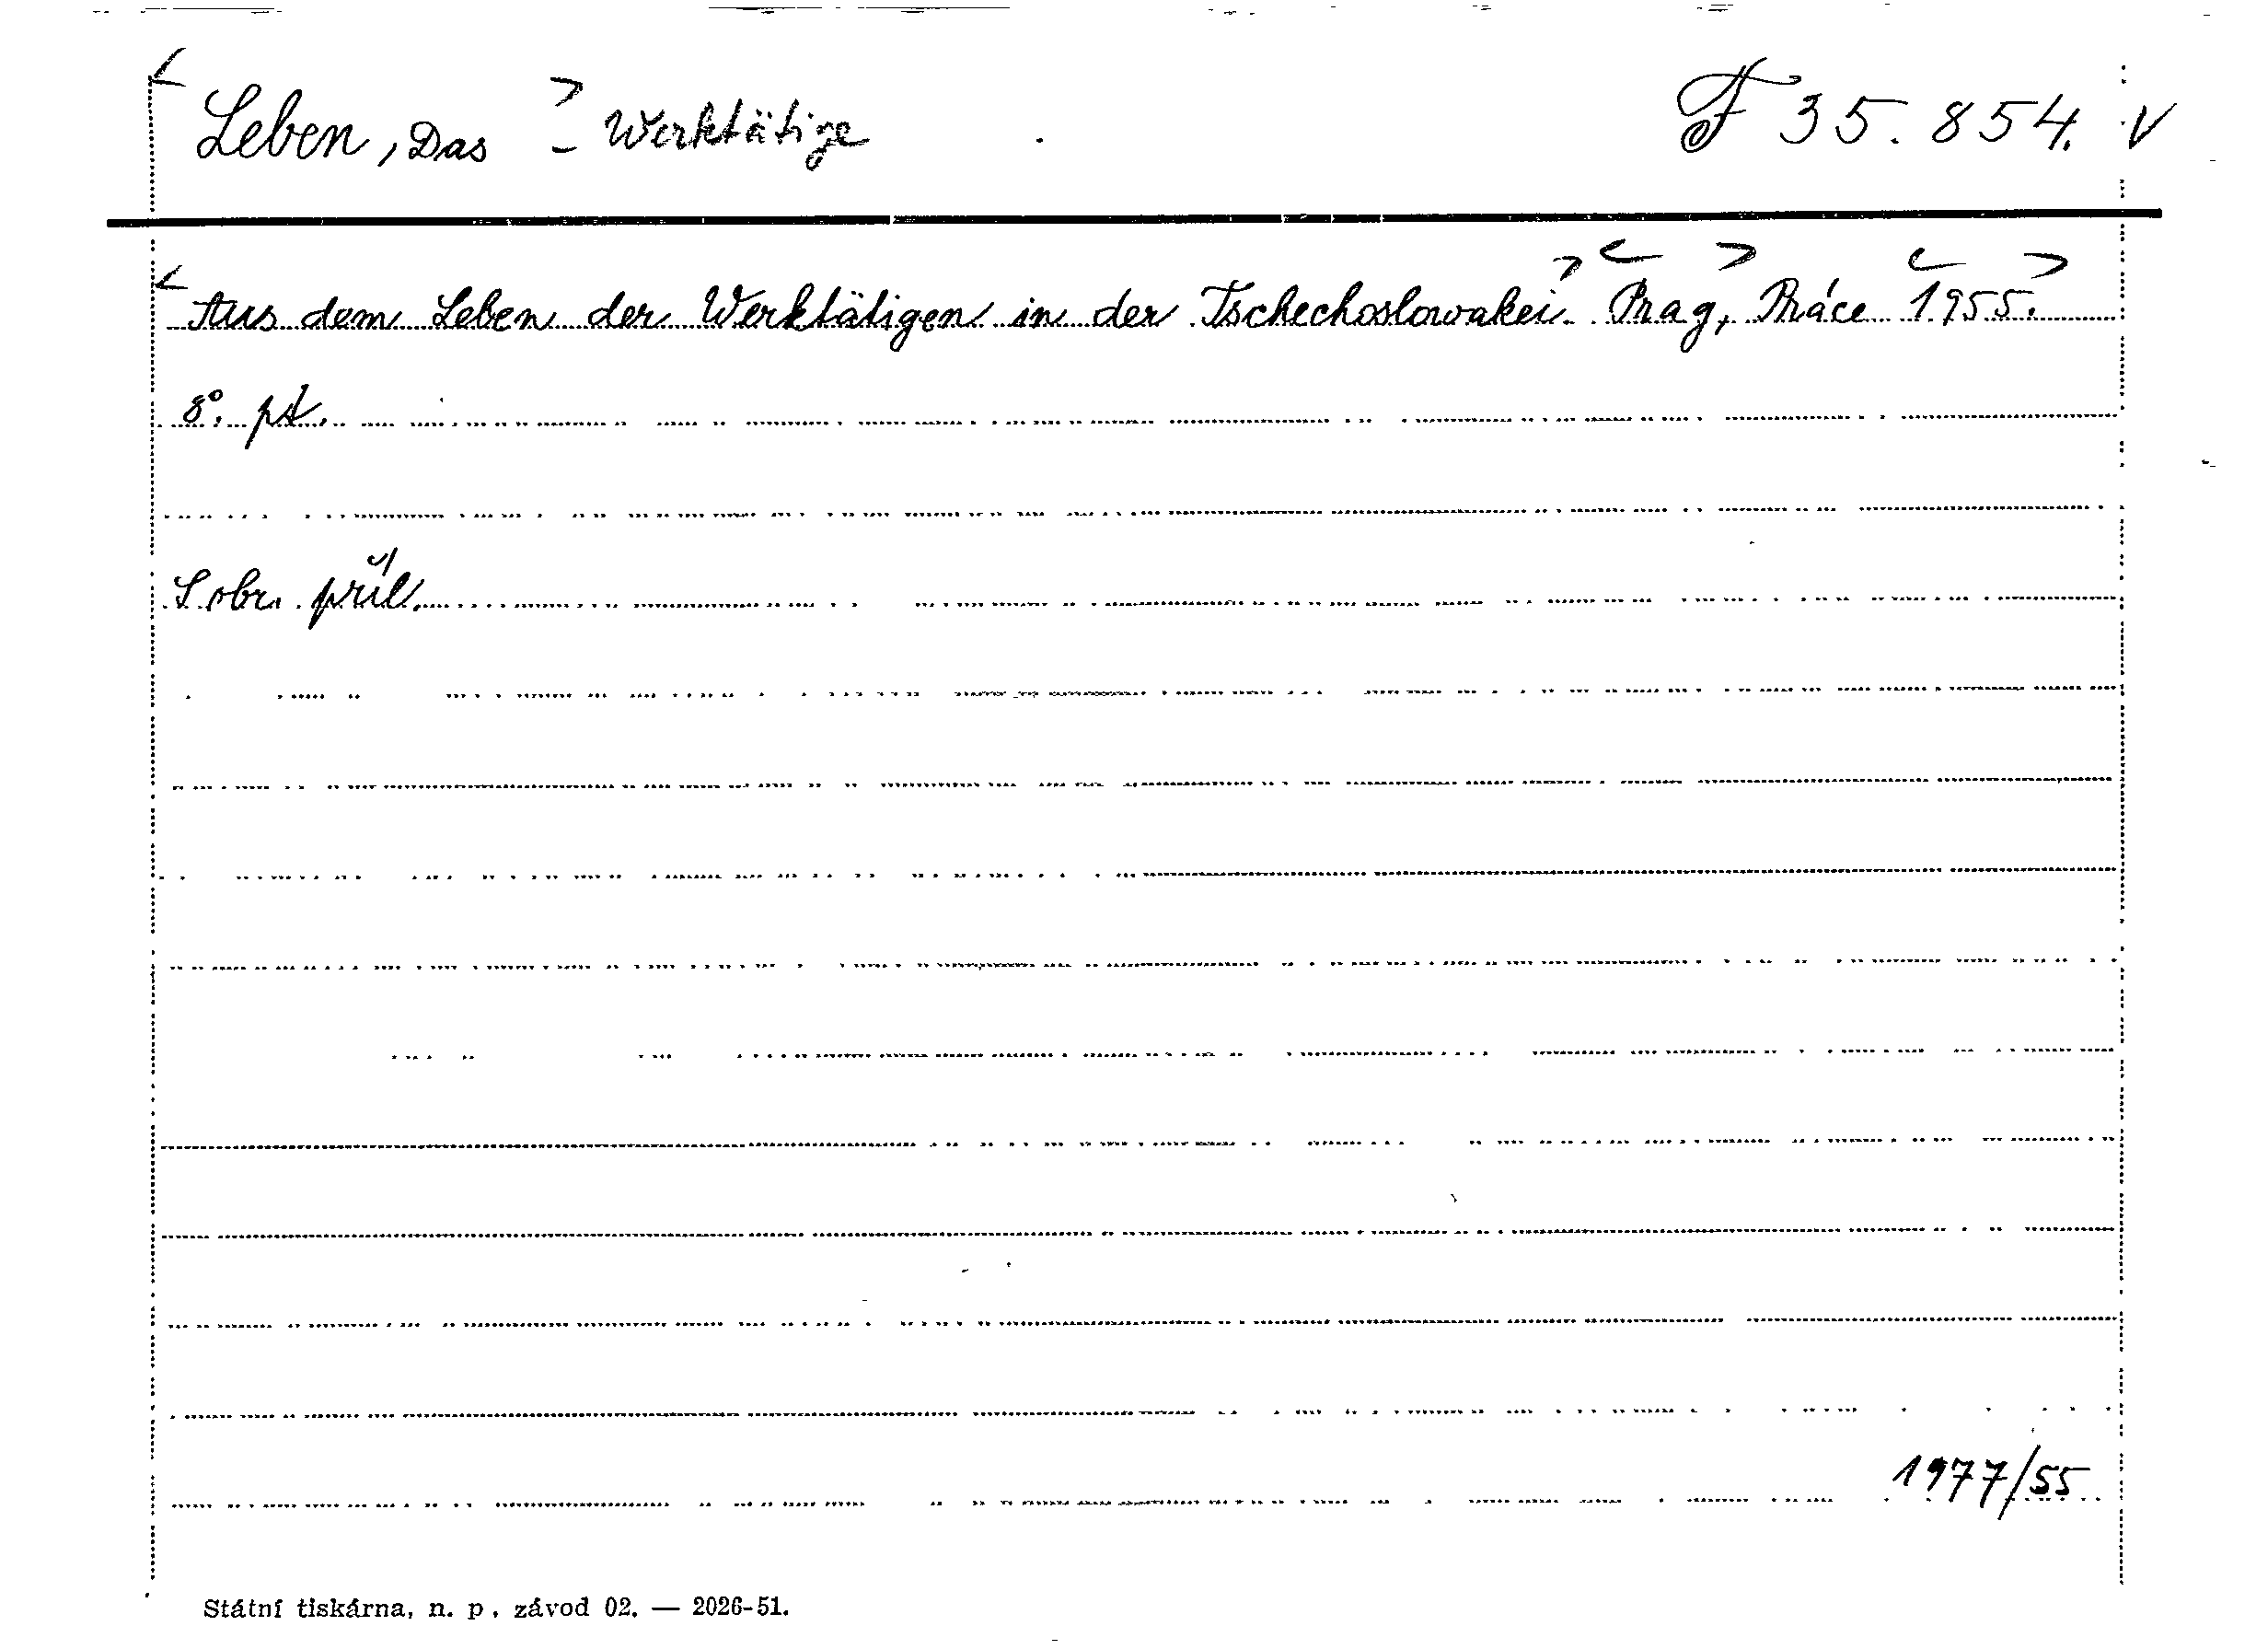 Leben, Das - Werktätige F 35.854. V
Aus dem Leben der Werktätigen in der Tschechoslowakei. Prag, Práce 1955.
8°. pt.
S obr. příl.
1977/55
Státní tiskárna, n. p. závod 02. — 2026-51.